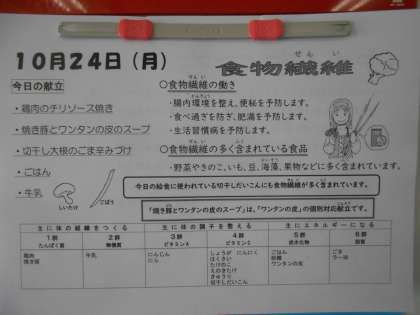 10月24日(月)
食物繊維
せん い
今日の献立
・鶏肉のチリソース焼き
・焼き豚とワンタンの皮のスープ
・切干し大根のごま辛みづけ
・ごはん
・牛乳
しいたけ
ごぼう
○食物繊維の働き
・腸内環境を整え、便秘を予防します。
・食べ過ぎを防ぎ、肥満を予防します。
・生活習慣病を予防します。
○食物繊維の多く含まれている食品
・野菜やきのこ、いも、豆、海藻、果物などに多く含まれています。
今日の給食に使われている切干しだいこんにも食物繊維が多く含まれています。
「焼き豚とワンタンの皮のスープ」は、「ワンタンの皮」の個別対応献立です。
主に体の組織をつくる 主に体の調子を整える 主にエネルギーになる
1群 2群 3群 4群 5群 6群
たんぱく質 無機質 ビタミンA ビタミンC 炭水化物 脂質
鶏肉 牛乳 にんじん しょうが にんにく ごはん ごま
焼き豚 にら はくさい 砂糖 ラー油
たけのこ ワンタンの皮
えのきたけ
きゅうり
切干しだいこん